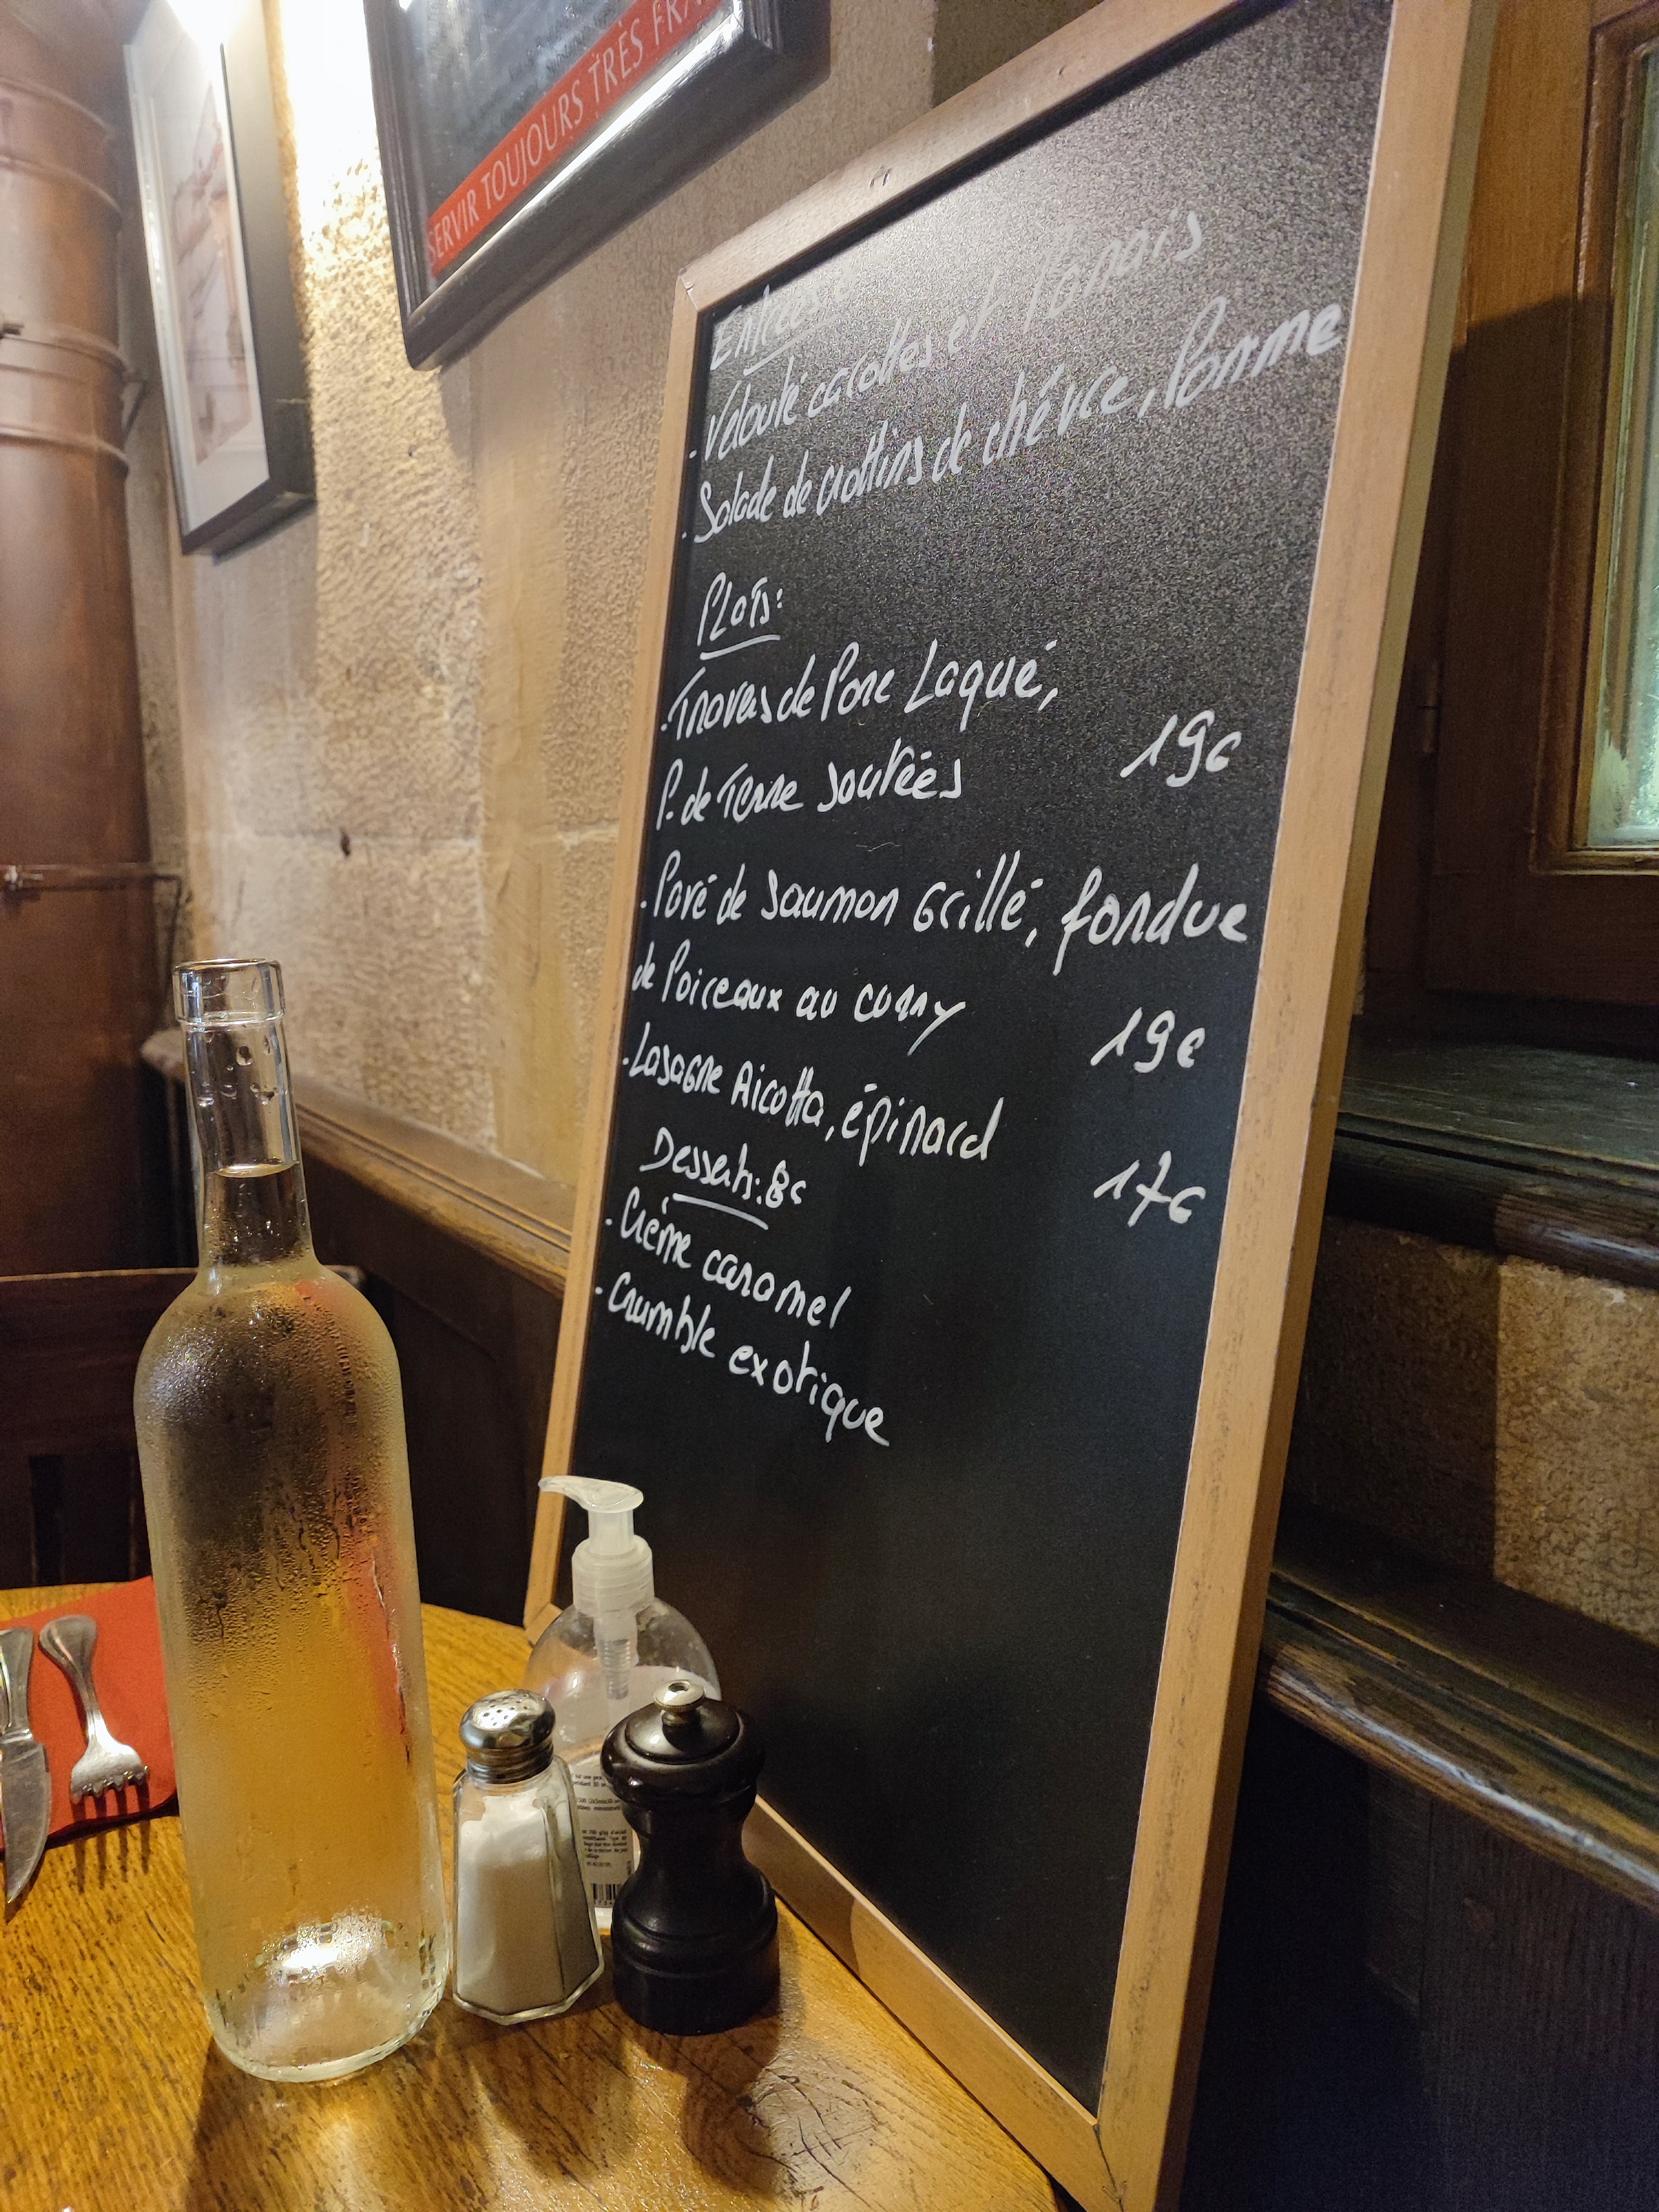 SERVIR TOUJOURS TRÈS FRA
Entrées:
. Velouté carottes et Panais
. Salade de crottins de chévre, Pomme
PLATS:
. Travers de Porc Laqué,
P. de Terre sautées 19€
. Pavé de Saumon Grillé, fondue
de Poireaux au curry 19€
. Lasagne Ricotta, épinard
17€
Desserts: 8€
. Crème caramel
. Crumble exotique